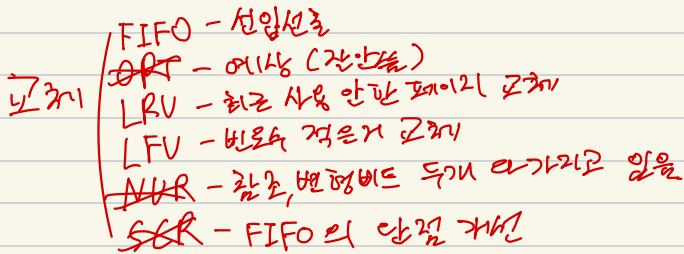 교체
FIFO - 선입선출
OPT - 예상 (잘안씀)
LRU - 최근 사용 안한 페이지 교체
LFU - 빈도수 적은거 교체
NUR - 참조, 변형비트 두개 다가지고 있음
SCR - FIFO의 단점 개선